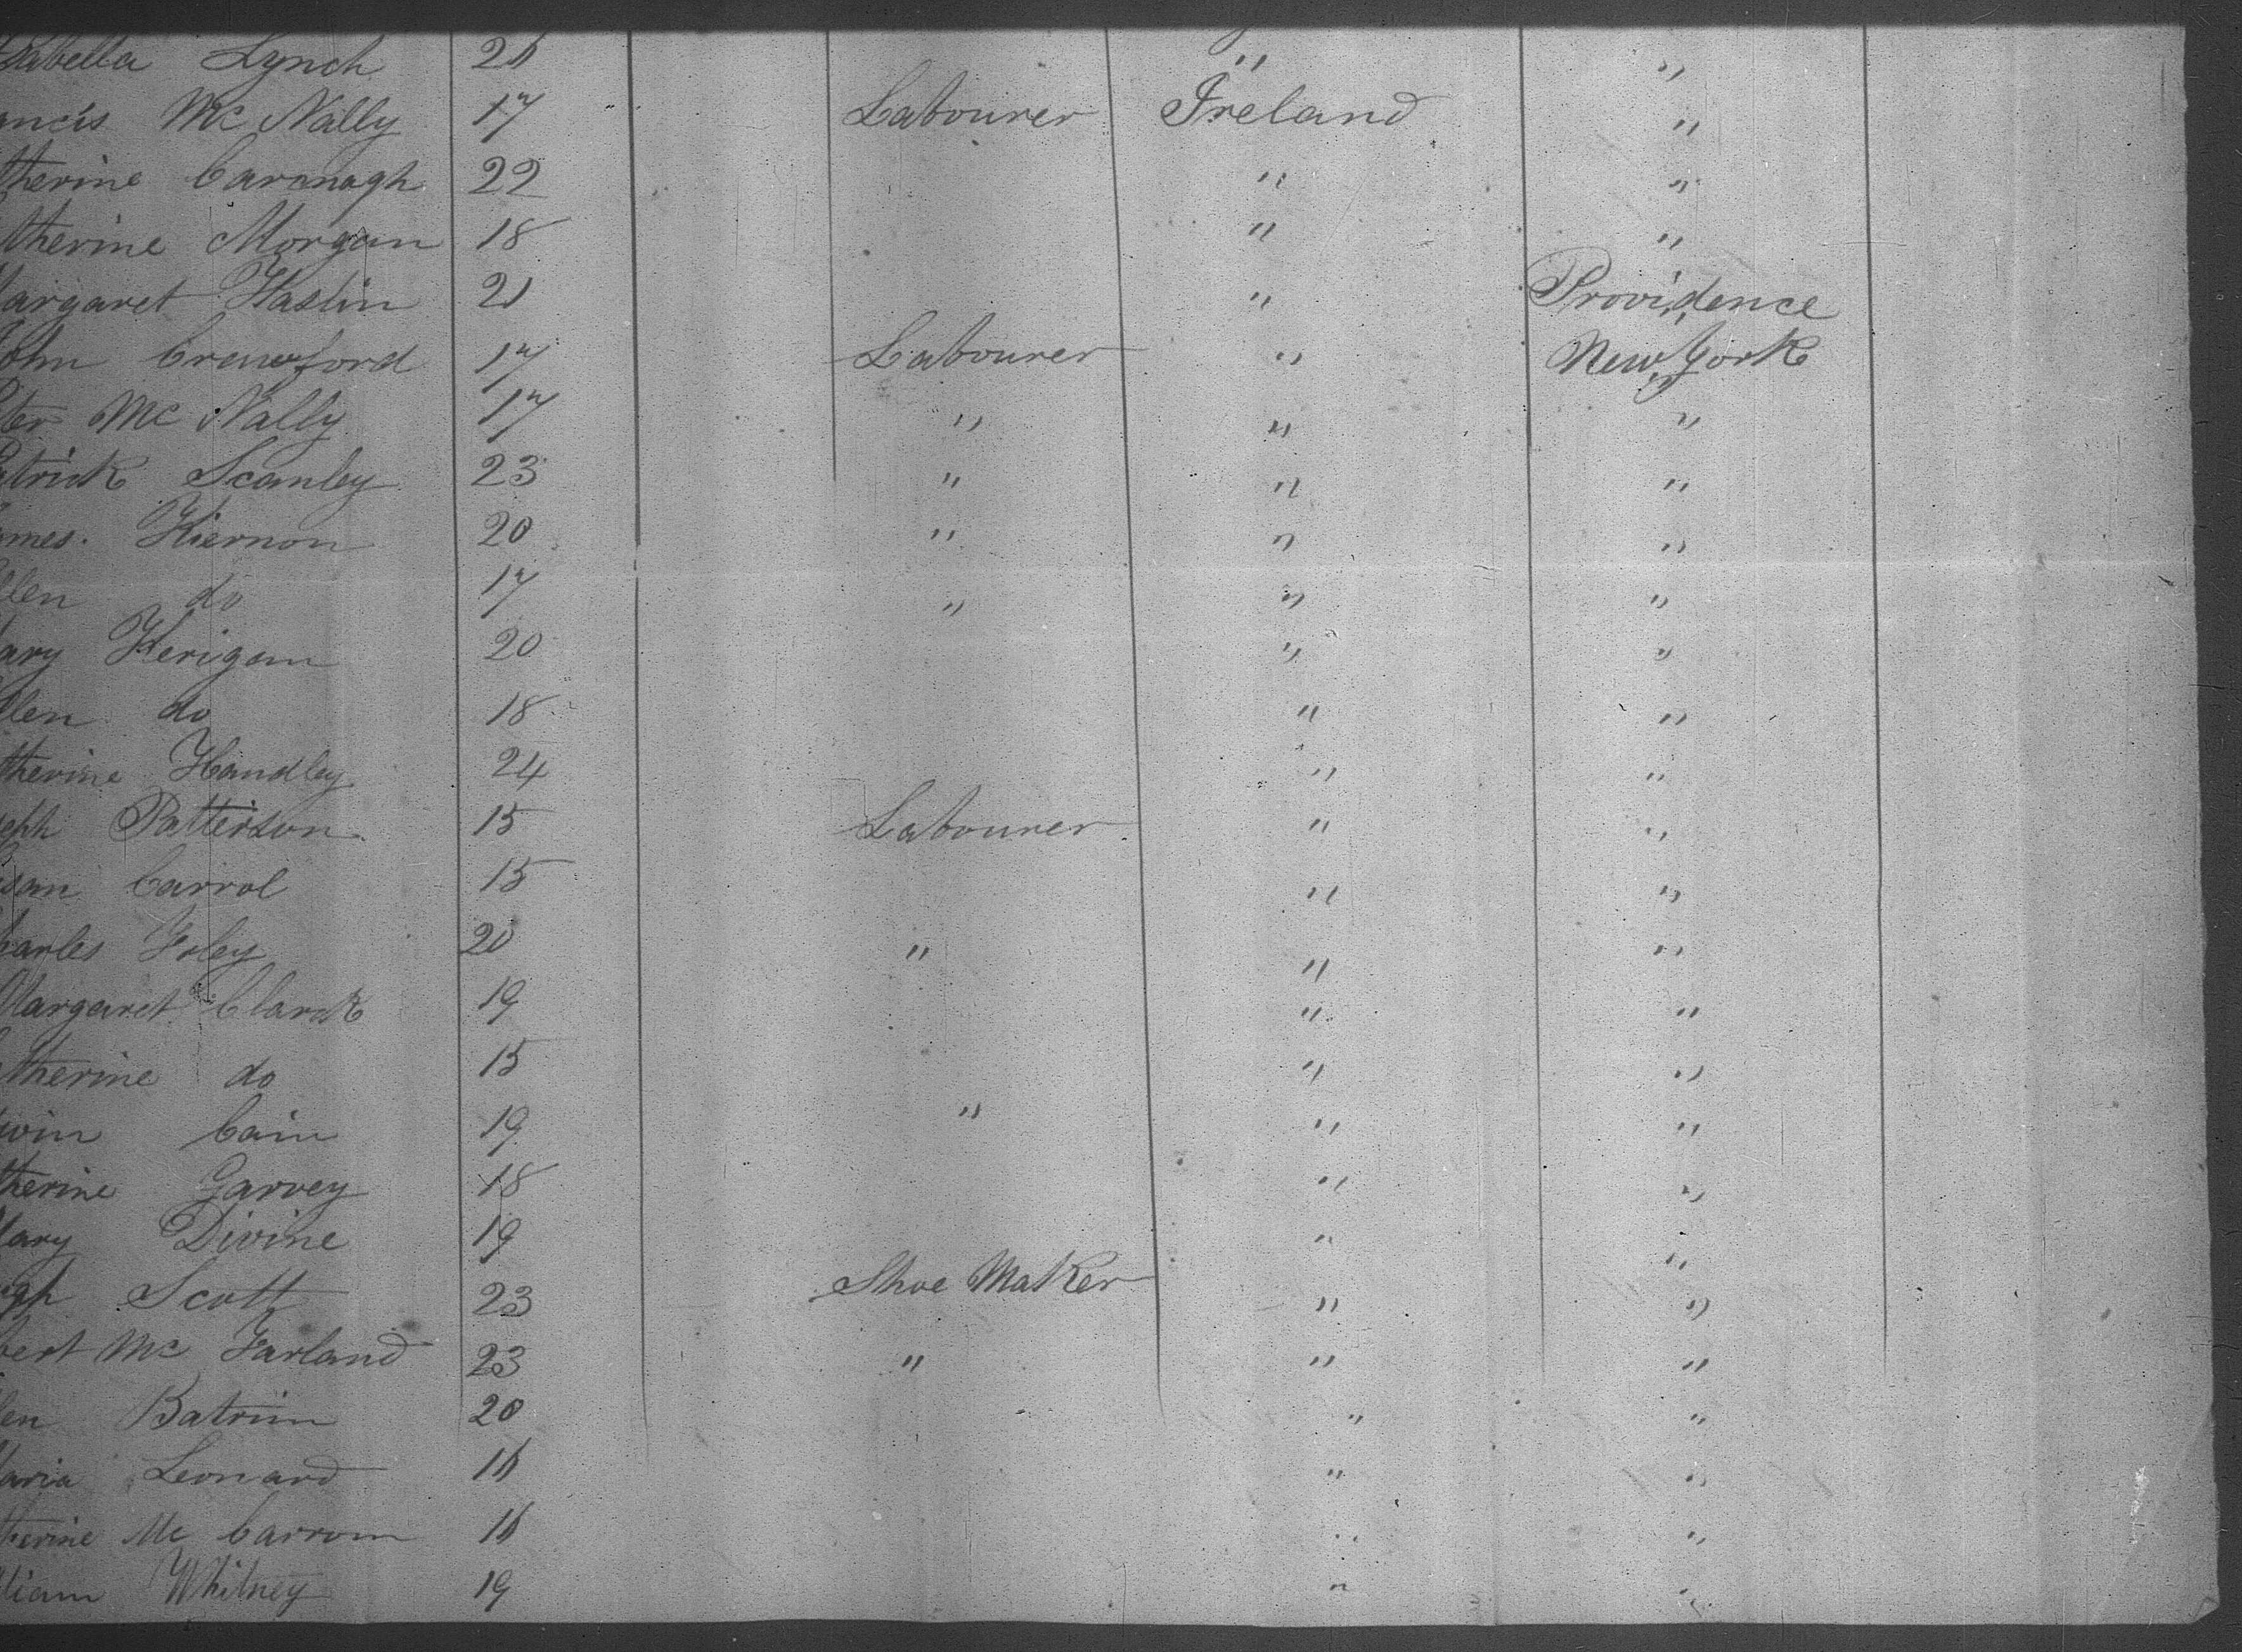 sabella Lynch 26 " "
ancis Mc Nally 17 Labourer Ireland "
therine Cavanagh 22 " "
therine Morgan 18 " "
argaret Haslin 21 " Providence
John Crawford 17 Labourer " New York
ter Mc Nally 17 " " "
atrick Scanley 23 " " "
ames. Kiernon 20 " " "
llen do 17 " " "
ary Kerigan 20 " "
llen do 18 " "
therine Handley 24 " "
seph Patterson 15 Labourer " "
usan Carrol 15 " "
harles Foley 20 " " "
Margaret Clark 19 " "
therine do 15 " "
win Cain 19 " " "
therine Garvey 18 " "
Mary Divine 19 " "
ugh Scott 23 Shoe Maker " "
bert Mc Farland 23 " " "
len Batrim 20 " "
Maria Leonard 16 " "
therine Mc Carrom 16 " "
lliam Whitney 19 " "